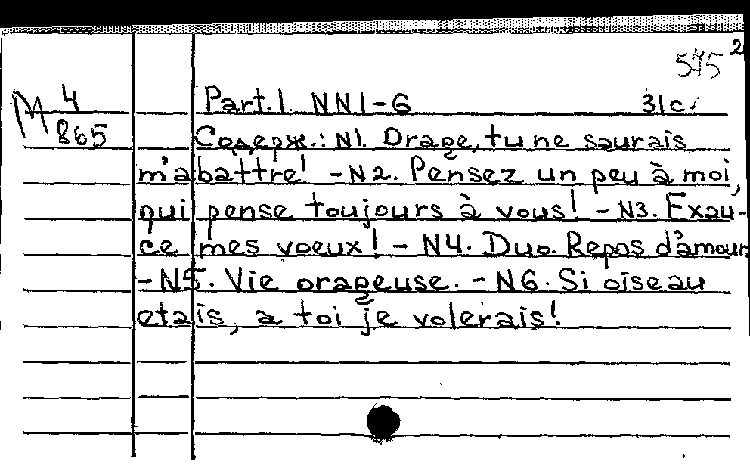 575 2
M 4
865
Part.I. NN1-6 31c.
Содерж.: N1. Orage, tu ne saurais
m'abattre! - N2. Pensez un peu à moi,
qui pense toujours à vous! - N3. Exau-
ce mes voeux! - N4. Duo. Repos d'amour.
- N5. Vie orageuse. - N6. Si oiseau
etais, a toi je volerais!